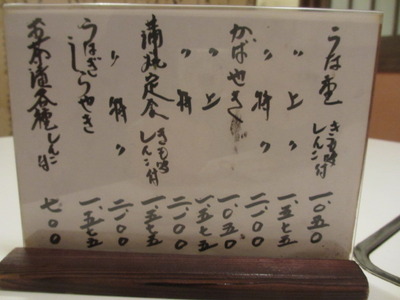 うな重 きも吸 しんこ付 一、〇五〇
〃 上 〃 一、五七五
〃 特 〃 二、一〇〇
かばやき 一、〇五〇
〃 上 一、五七五
〃 特 二、一〇〇
蒲焼定食 きも吸 しんこ付 一、五七五
〃 特 〃 二、一〇〇
うなぎしらやき 一、五七五
お茶漬各種 しんこ付 七〇〇